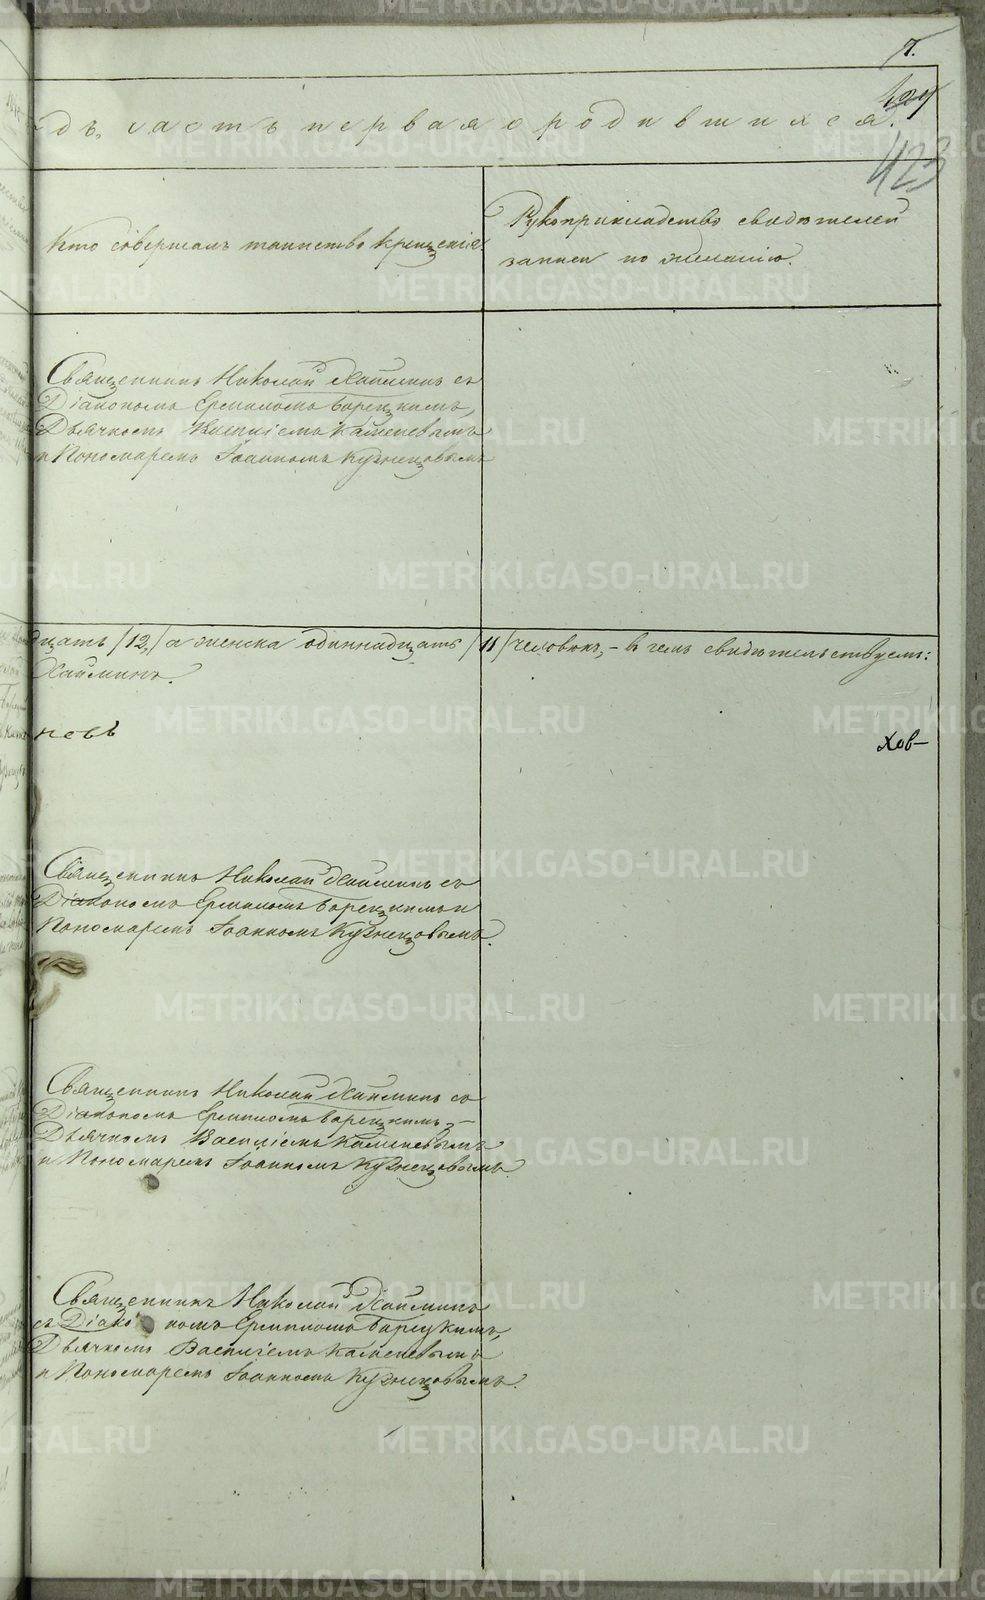 7.
423
дъ, часть первая о родившихся.
Кто совершалъ таинство крещенія.
Рукоприкладство свидѣтелей
записи по желанію.
Священникъ Николай Хаймин съ
Діакономъ Ермиломъ Барецкимъ,
Дьячкомъ Василіемъ Каменевымъ
и Пономаремъ Іоанномъ Кузнецовымъ
дцать /12,/ а женска одиннадцать /11/ человѣкъ, – в чемъ свидѣтельствуемъ:
Хайминъ.
невъ
хов–
Священникъ Николай Хайминъ съ
Діакономъ Ермиломъ Барецкимъ и
Пономаремъ Іоанномъ Кузнецовымъ.
Священникъ Николай Хайминъ съ
Діакономъ Ермиломъ Барецкимъ, –
Дьячкомъ Василіемъ Каменевымъ
и Пономаремъ Іоанномъ Кузнецовымъ.
Священникъ Николай Хайминъ
съ Діакономъ Ермиломъ Барецкимъ,
Дьячкомъ Василіемъ Каменевымъ
и Пономаремъ Іоанномъ Кузнецовымъ.
METRIKI.GASO-URAL.RU